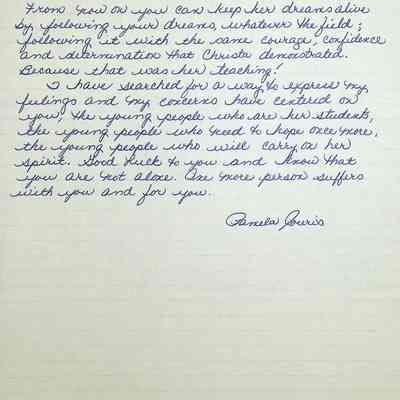 From now on you can keep her dreams alive
by following your dreams, whatever the field;
following it with the same courage, confidence
and determination that Christa demonstrated.
Because that was her teaching!
I have searched for a way to express my
feelings and my concerns have centered on
you, the young people who are her students,
the young people who need to hope once more,
the young people who will carry on her
spirit. Good luck to you and know that
you are not alone. One more person suffers
with you and for you.
Pamela Jouris